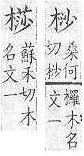 桫
桒何欏木名
切桫文一
蘇禾切木
名文一